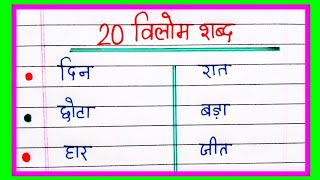 20 विलोम शब्द
दिन रात
छोटा बड़ा
हार जीत